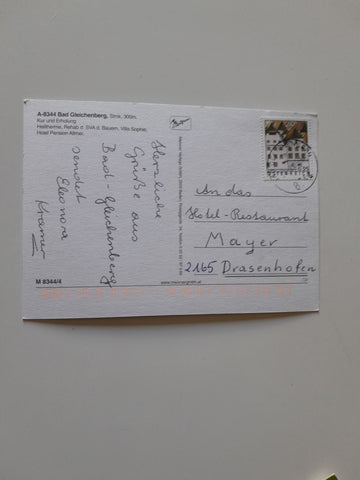 A-8344 Bad Gleichenberg, Stmk, 300m.
Kur und Erholung
Heiltherme, Rehab d. SVA d. Bauern, Villa Sophie,
Hotel Pension Allmer.
Herzliche
Grüße aus
Bad-Gleichenberg
sendet
Eleonora
Kramer
M 8344/4
An das
Hotel-Restaurant
Mayer
2165 Drasenhofen